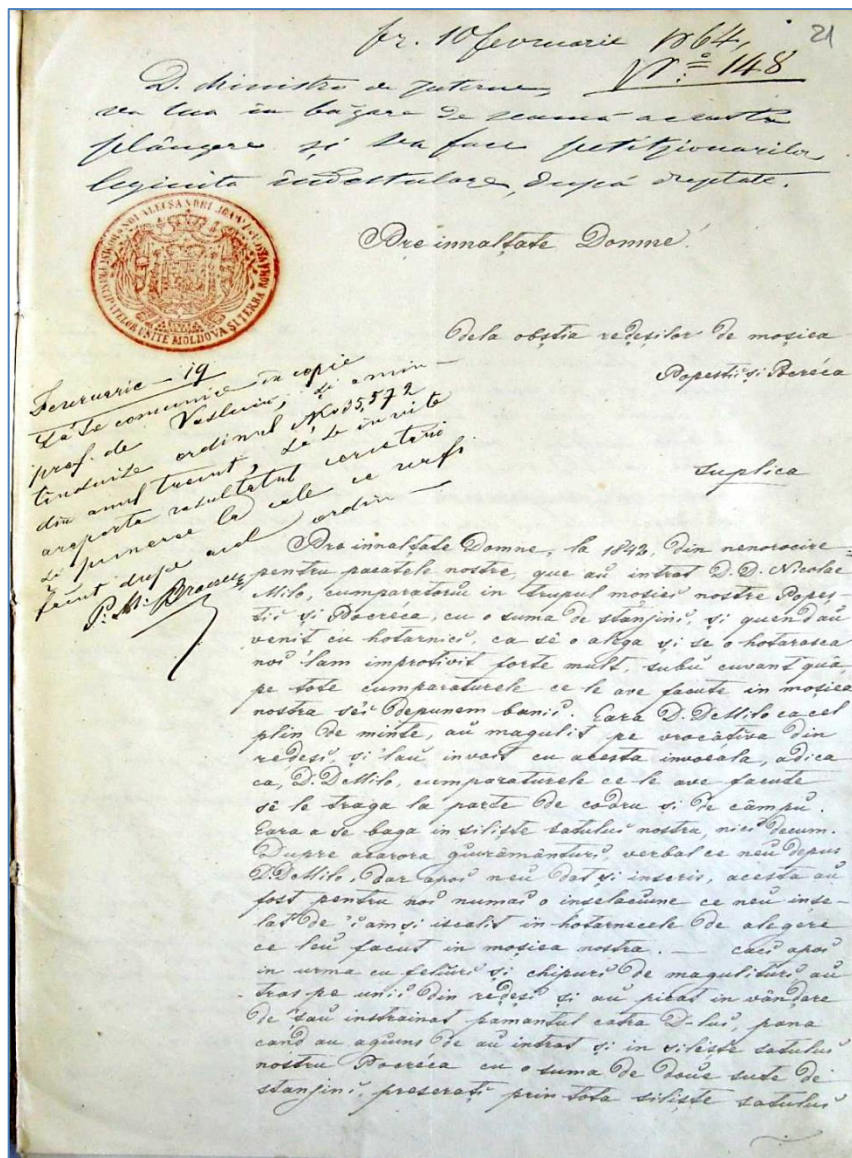 pr. 10 fevruarie 1864,
No. 148
21
D. Ministru de Interne,
va lua în băgare de seamă acésta
plângere și va face petiționarilor
legiuita îndestulare, după dreptate.
PRINCIPATELOR UNITE MOLDOVA ȘI TERRA ROMÂNĂ
Pre innalțate Domne!
Dela obștia redeșilor de moșiea
Popeștii și Pocréca
suplica
Fevruarie 19
Să se comunice în copie
pref. de Vasluiu, și amin-
tinduise ordinul No 35,572
din anul trecut, să se invite
a raporta resultatul cercetării
și punerea la cale ce va fi
făcut dupe acel ordin
Pre innalțate Domne, la 1842, din nenorocire
pentru pacatele nostre, que au intrat D. D. Nicolae
Milo, cumparatoriu in trupul moșiei nostre Popes-
tii și Pocréca, cu o suma de stânjini, și quend au
venit cu hotarnici, ca sĕ o aléga și se o hotarasca
noi 'lam improtivit forte mult, subŭ cuvant quă,
pe tote cumparaturele ce le ave facute in moșiea
nostra sĕi depunem banii. Eara D. De Milo ca cel
plin de minte, au magulit pe vrocâțiva din
redeși, și 'lau invoit cu acesta invoéala, adica
ca, D. De Milo, cumparaturele ce le ave facute
sĕ le traga la parte de codru și de câmpu.
Eara a se baga in siliște satului nostra, nici decum.
Dupre acarora giurământuri, verbal ce neu depus
D. De Milo, dar apoi neu dat și inscris, acesta au
fost pentru noi numai o inselaciune ce neu inșe-
lat de 'iam și iscalit in hotarnecele de alegere
ce leu facut in moșiea nostra. — caci apoi
in urma cu feliuri și chipuri de magulituri au
tras pe unii din redeși și au picat in vândare
de șau instrainat pamantul catra D-lui, pana
cand au agiuns de au intrat și in siliște satului
nostru Pocréca cu o suma de doue sute de
stanjini, preserați prin tota siliște satului